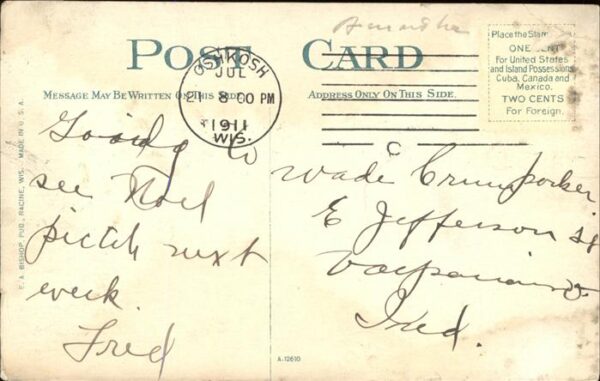 POST CARD
MESSAGE MAY BE WRITTEN ON THIS SIDE.
ADDRESS ONLY ON THIS SIDE.
Place the Stamp
ONE CENT
For United States
and Island Possessions
Cuba, Canada and
Mexico.
TWO CENTS
For Foreign.
OSHKOSH
JUL
21
8 00 PM
1911
WIS.
C
Going to
see Noel
pitch next
week
Fred
Wade Crumpacker
E Jefferson St
Valparaiso
Ind.
F. A. BISHOP, PUB., RACINE, WIS. MADE IN U. S. A.
A-12610